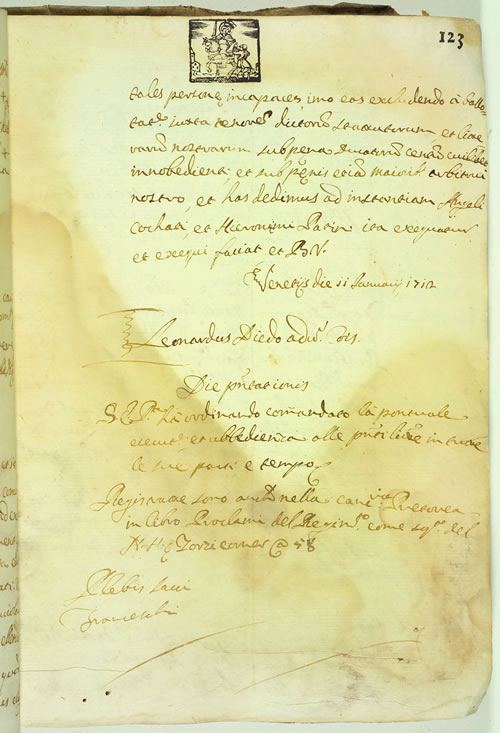 123
tales persone incapaces, imo eas excludendo à ballo-
tat.e juxta tenores dictorum statutorum et litte
rarum nostrarum sub pena ducatorum centum cuilibet
innobedienti et sub penis etiam maiorib. arbitrio
nostro, et has dedimus ad instantiam Angeli
et Hieronimi Patin ita exequatur
et exequi faciat et B. V.
Venetijs die 11 Januarij 1712
Leonardus Diedo adu.r Cõis.
Die pñtationis
S. E. Pta hà ordinando comandato la pontuale
esecut.e et ubbedienza alle pñti in tutte
le sue parti e tempo
Registrate sono and. nella Pretorea
in libro Proclami del Regim.to come del
Zorzi corner @ 58
Plebis Sacci
Franceschi